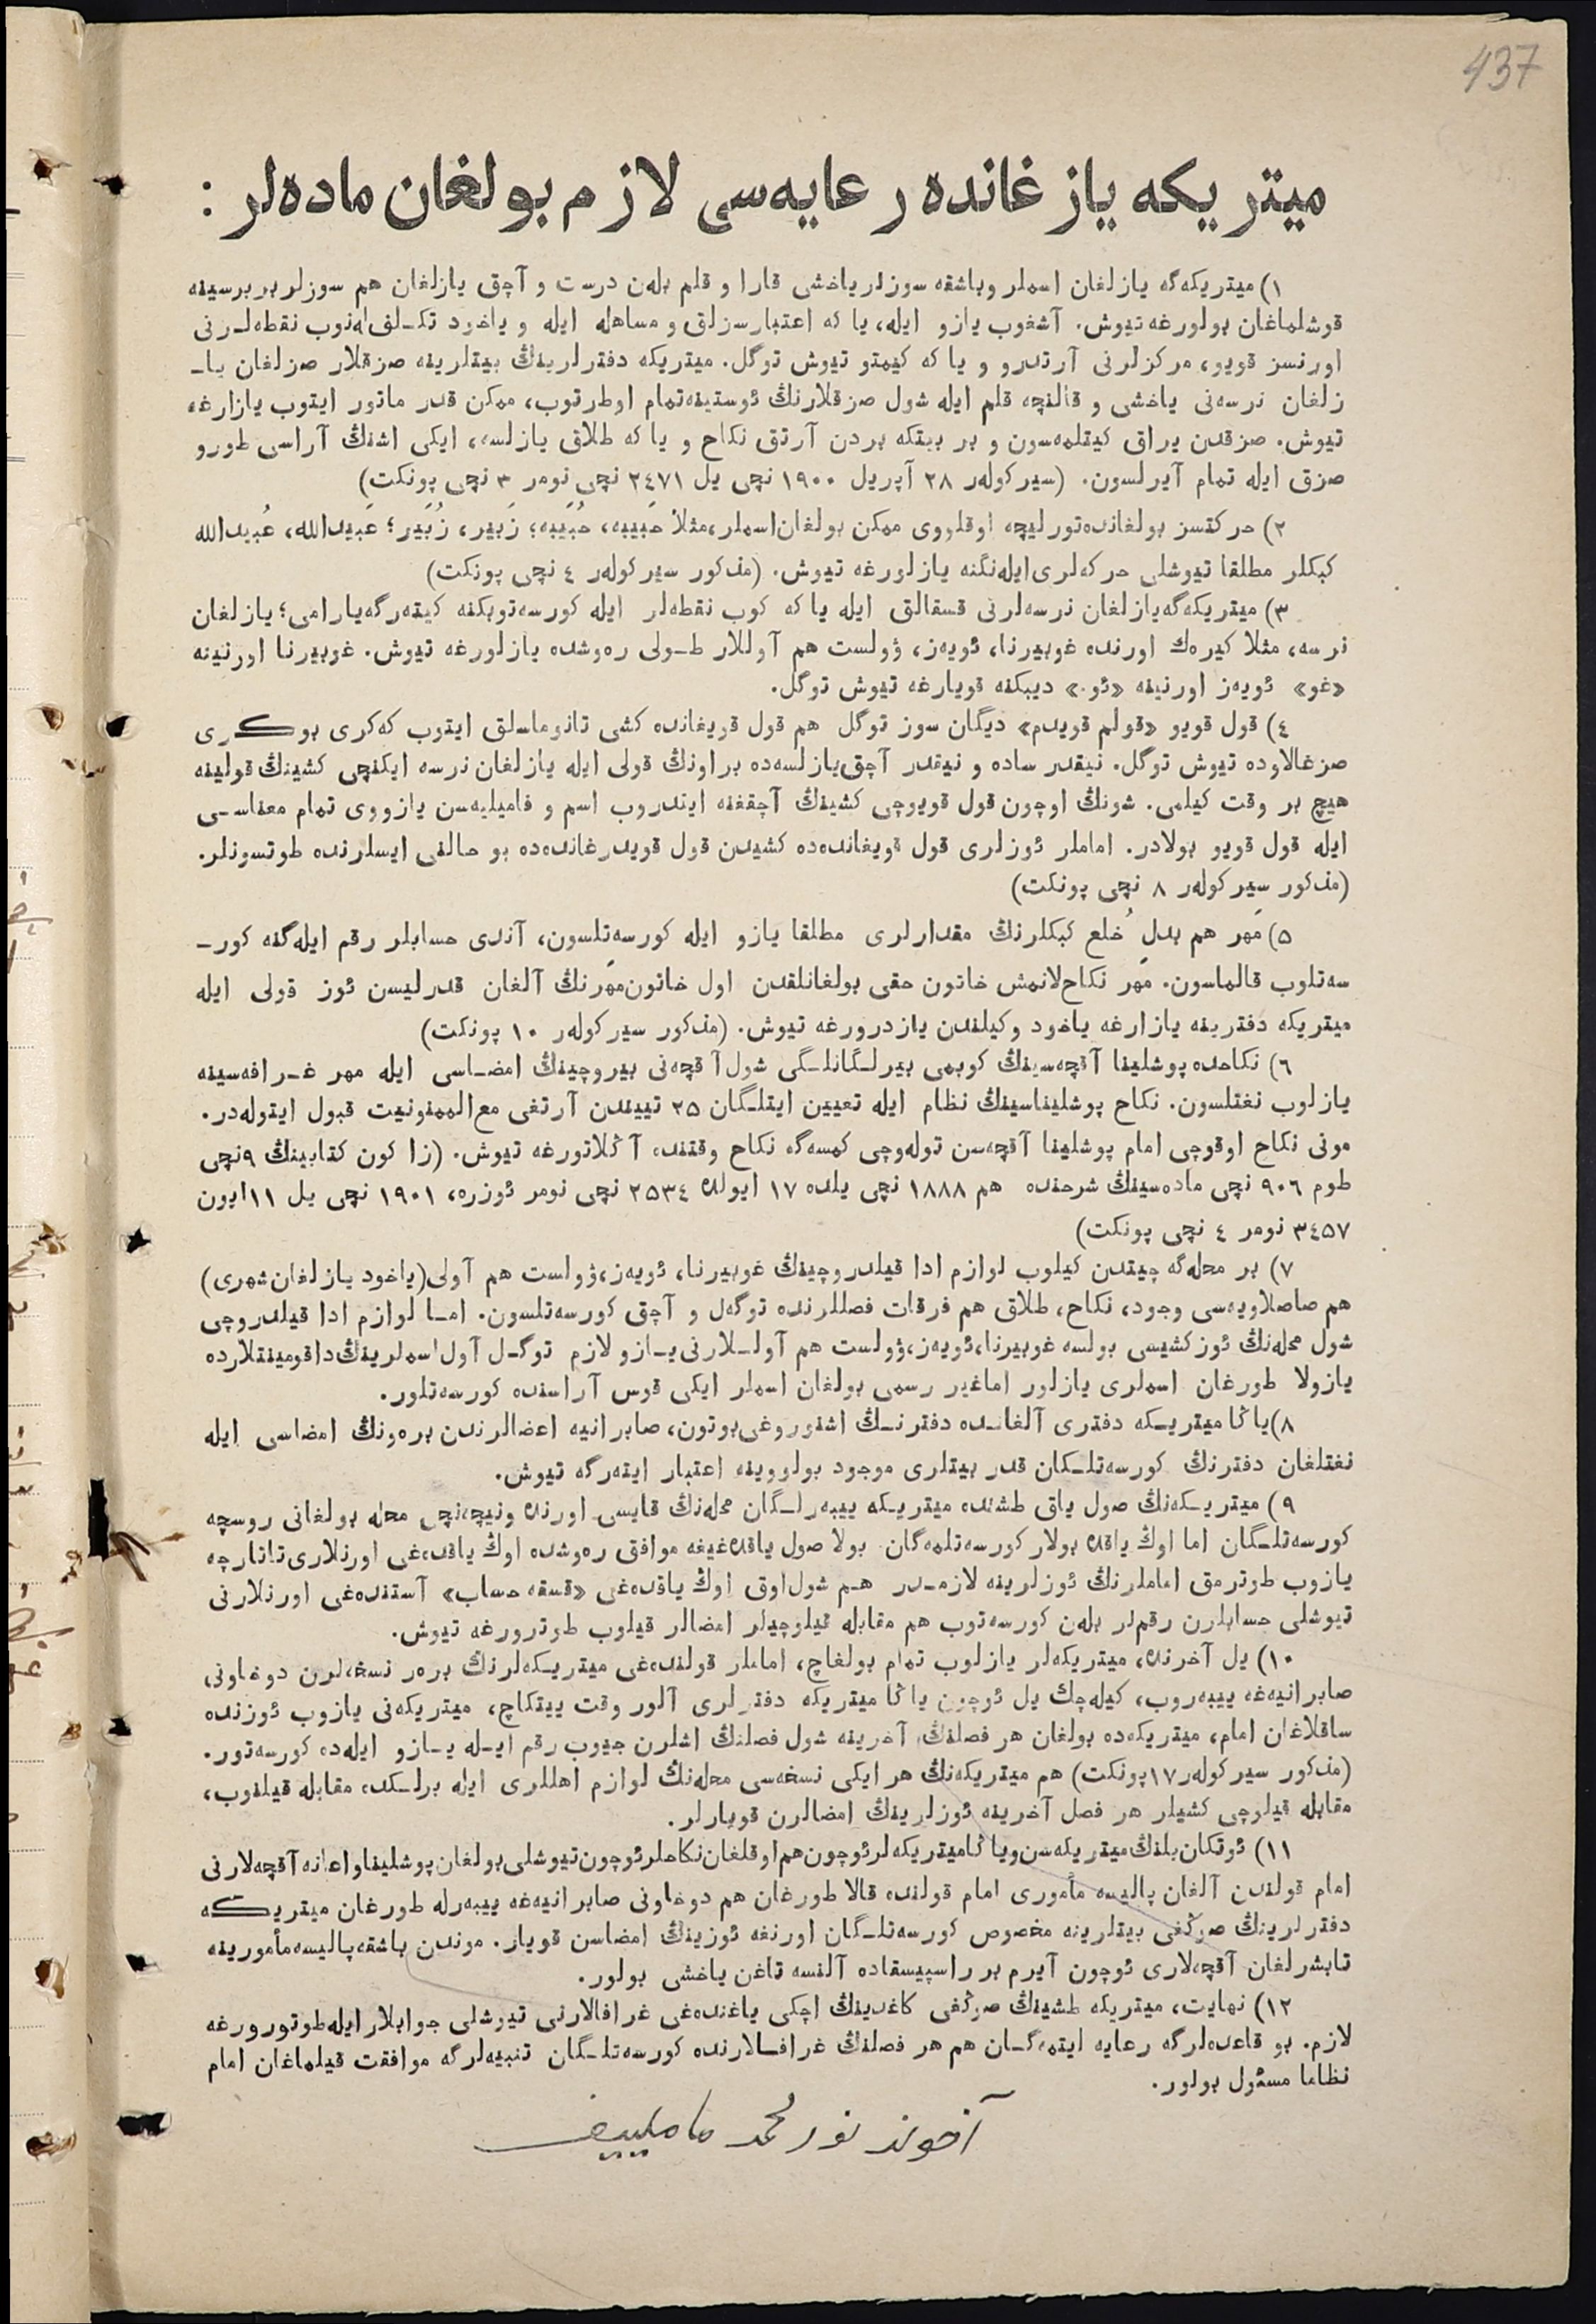 437
ميتريكه يازغانده رعايه‌سى لازم بولغان ماده‌لر :
١) ميتريكه‌گه يازلغان اسملر وباشقه سوزلر ياخشى قارا و قلم بله‌ن درست و آچق يازلغان هم سوزلر بربرسينه
قوشلماغان بولورغه تيوش. آشغوب يازو ايله، يا كه اعتبارسزلق و مساهله ايله و ياخود تكلف‌له‌نوب نقطه‌لرنى
اورنسز قويو، مركزلرنى آرتدرو و يا كه كيمتو تيوش توگل. ميتريكه دفترلرينڭ بيتلرينه صزقلار صزلغان يا-
زلغان نرسه‌نى ياخشى و قالنچه قلم ايله شول صزقلارنڭ ئوستينه تمام اوطرتوب، ممكن قدر ماتور ايتوب يازارغه
تيوش. صزقدن يراق كيتلمه‌سون و بر بيتكه بردن آرتق نكاح و يا كه طلاق يازلسه، ايكى اشنڭ آراسى طورو
صزق ايله تمام آيرلسون. (سيركوله‌ر ٢٨ آپريل ١٩٠٠ نچى يل ٢٤٧١ نچى نومر ٣ نچى پونكت)
٢) حركتسز بولغانده تورليچه اوقلووى ممكن بولغان اسملر، مثلا حَبيبه، حُبَيبه؛ زَبير، زُبَير؛ عَبيدالله، عُبيدالله
كبكلر مطلقا تيوشلى حركه‌لرى ايله‌نگنه يازلورغه تيوش. (مذكور سيركوله‌ر ٤ نچى پونكت)
٣) ميتريكه‌گه يازلغان نرسه‌لرنى قسقالق ايله يا كه كوب نقطه‌لر ايله كورسه‌توبكنه كيته‌رگه يارامى؛ يازلغان
نرسه، مثلا كيره‌ك اورنده غوبيرنا، ئويه‌ز، ۋولست هم آوللار طولى ره‌وشده يازلورغه تيوش. غوبيرنا اورنينه
«غو» ئويه‌ز اورنينه «ئو.» ديبكنه قويارغه تيوش توگل.
٤) قول قويو «قولم قويدم» ديگان سوز توگل هم قول قويغانده كشى تانوماسلق ايتوب كه‌كرى بوكرى
صزغالاوده تيوش توگل. نيقدر ساده و نيقدر آچق يازلسه‌ده براونڭ قولى ايله يازلغان نرسه ايكنچى كشينڭ قولينه
هيچ بر وقت كيلمى. شونڭ اوچون قول قويوچى كشينڭ آچقغنه ايتدروب اسم و فاميليه‌سن يازووى تمام معناسى
ايله قول قويو بولادر. اماملر ئوزلرى قول قويغانده‌ده كشيدن قول قويدرغانده‌ده بو حالنى ايسلرنده طوتسونلر.
(مذكور سيركوله‌ر ٨ نچى پونكت)
٥) مَهر هم بدلِ خُلع كبكلرنڭ مقدارلرى مطلقا يازو ايله كورسه‌تلسون، آندى حسابلر رقم ايله گنه كور-
سه‌تلوب قالماسون. مَهر نكاح‌لانمش خاتون حقى بولغانلقدن اول خاتون مَهرنڭ آلغان قدرليسن ئوز قولى ايله
ميتريكه دفترينه يازارغه ياخود وكيلندن يازدرورغه تيوش. (مذكور سيركوله‌ر ١٠ پونكت)
٦) نكاحده پوشلينا آقچه‌سينڭ كوبمى بيرلگانلگى شول آقچه‌نى بيروچينڭ امضاسى ايله مهر غرافه‌سينه
يازلوب نغتلسون. نكاح پوشليناسينڭ نظام ايله تعيين ايتلگان ٢٥ تييندن آرتغى مع‌الممنونيت قبول ايتوله‌در.
مونى نكاح اوقوچى امام پوشلينا آقچه‌سن توله‌وچى كمسه‌گه نكاح وقتنده آڭلاتورغه تيوش. (زاكون كتابينڭ ٩نچى
طوم ٩٠٦ نچى ماده‌سينڭ شرحنده هم ١٨٨٨ نچى يلده ١٧ ايولده ٢٥٣٤ نچى نومر ئوزره، ١٩٠١ نچى يل ١١ايون
٣٤٥٧ نومر ٤ نچى پونكت)
٧) بر محله‌گه چيتدن كيلوب لوازم ادا قيلدروچينڭ غوبيرنا، ئويه‌ز، ۋولست هم آولى(ياخود يازلغان شهرى)
هم صاصلاويه‌سى وجود، نكاح، طلاق هم فرقات فصللرنده توگه‌ل و آچق كورسه‌تلسون. اما لوازم ادا قيلدروچى
شول محله‌نڭ ئوز كشيسى بولسه غوبيرنا، ئويه‌ز، ۋولست هم آوللارنى يازو لازم توگل آول اسملرينڭ داقومينتلارده
يازولا طورغان اسملرى يازلور اماغير رسمى بولغان اسملر ايكى قوس آراسنده كورسه‌تلور.
٨)ياڭا ميتريكه دفترى آلغانده دفترنڭ اشنوروغى بوتون، صابرانيه اعضالرندن بره‌ونڭ امضاسى ايله
نغتلغان دفترنڭ كورسه‌تلكان قدر بيتلرى موجود بولووينه اعتبار ايته‌رگه تيوش.
٩) ميتريكه‌نڭ صول ياق طشنده ميتريكه ييبه‌رلگان محله‌نڭ قايسى اورنده ونيچه‌نچى محله بولغانى روسچه
كورسه‌تلگان اما اوڭ ياقده بولار كورسه‌تلمه‌گان بولا صول ياقده‌غيغه موافق ره‌وشده اوڭ ياقده‌غى اورنلارى تاتارچه
يازوب طوترمق اماملرنڭ ئوزلرينه لازمدر هم شول‌اوق اوڭ ياقده‌غى «قسقه حساب» آستنده‌غى اورنلارنى
تيوشلى حسابلرن رقملر بله‌ن كورسه‌توب هم مقابله قيلوچيلر امضالر قيلوب طوترورغه تيوش.
١٠) يل آخرنده، ميتريكه‌لر يازلوب تمام بولغاچ، اماملر قولنده‌غى ميتريكه‌لرنڭ بره‌ر نسخه‌لرن دوخاونى
صابرانيه‌غه ييبه‌روب، كيله‌چك يل ئوچون ياڭا ميتريكه دفترلرى آلور وقت ييتكاچ، ميتريكه‌نى يازوب ئوزنده
ساقلاغان امام، ميتريكه‌ده بولغان هر فصلنڭ آخرينه شول فصلنڭ اشلرن جيوب رقم ايله يازو ايله‌ده كورسه‌تور.
(مذكور سيركوله‌ر ١٧پونكت) هم ميتريكه‌نڭ هر ايكى نسخه‌سى محله‌نڭ لوازم اهللرى ايله برلكده مقابله قيلنوب،
مقابله قيلوچى كشيلر هر فصل آخرينه ئوزلرينڭ امضالرن قويارلر.
١١) ئوتكان يلنڭ ميتريكه‌سن وياڭا ميتريكه‌لر ئوچون هم اوقلغان نكاحلر ئوچون تيوشلى بولغان پوشلينا واعانه آقچه‌لارنى
امام قولندن آلغان پاليسه مأمورى امام قولنده قالا طورغان هم دوخاونى صابرانيه‌غه ييبه‌رله طورغان ميتريكه
دفترلرينڭ صوڭغى بيتلرينه مخصوص كورسه‌تلگان اورنغه ئوزينڭ امضاسن قويار. موندن باشقه پاليسه مأمورينه
تابشرلغان آقچه‌لارى ئوچون آيرم بر راسپيسقاده آلنسه تاغن ياخشى بولور.
١٢) نهايت، ميتريكه طشينڭ صوڭغى كاغدينڭ اچكى ياغنده‌غى غرافالارنى تيوشلى جوابلار ايله طوتورورغه
لازم. بو قاعده‌لرگه رعايه ايتمه‌گان هم هر فصلنڭ غرافالارنده كورسه‌تلگان تنبيه‌لرگه موافقت قيلماغان امام
نظاما مسئول بولور.
آخوند نورمحمد مامليييف